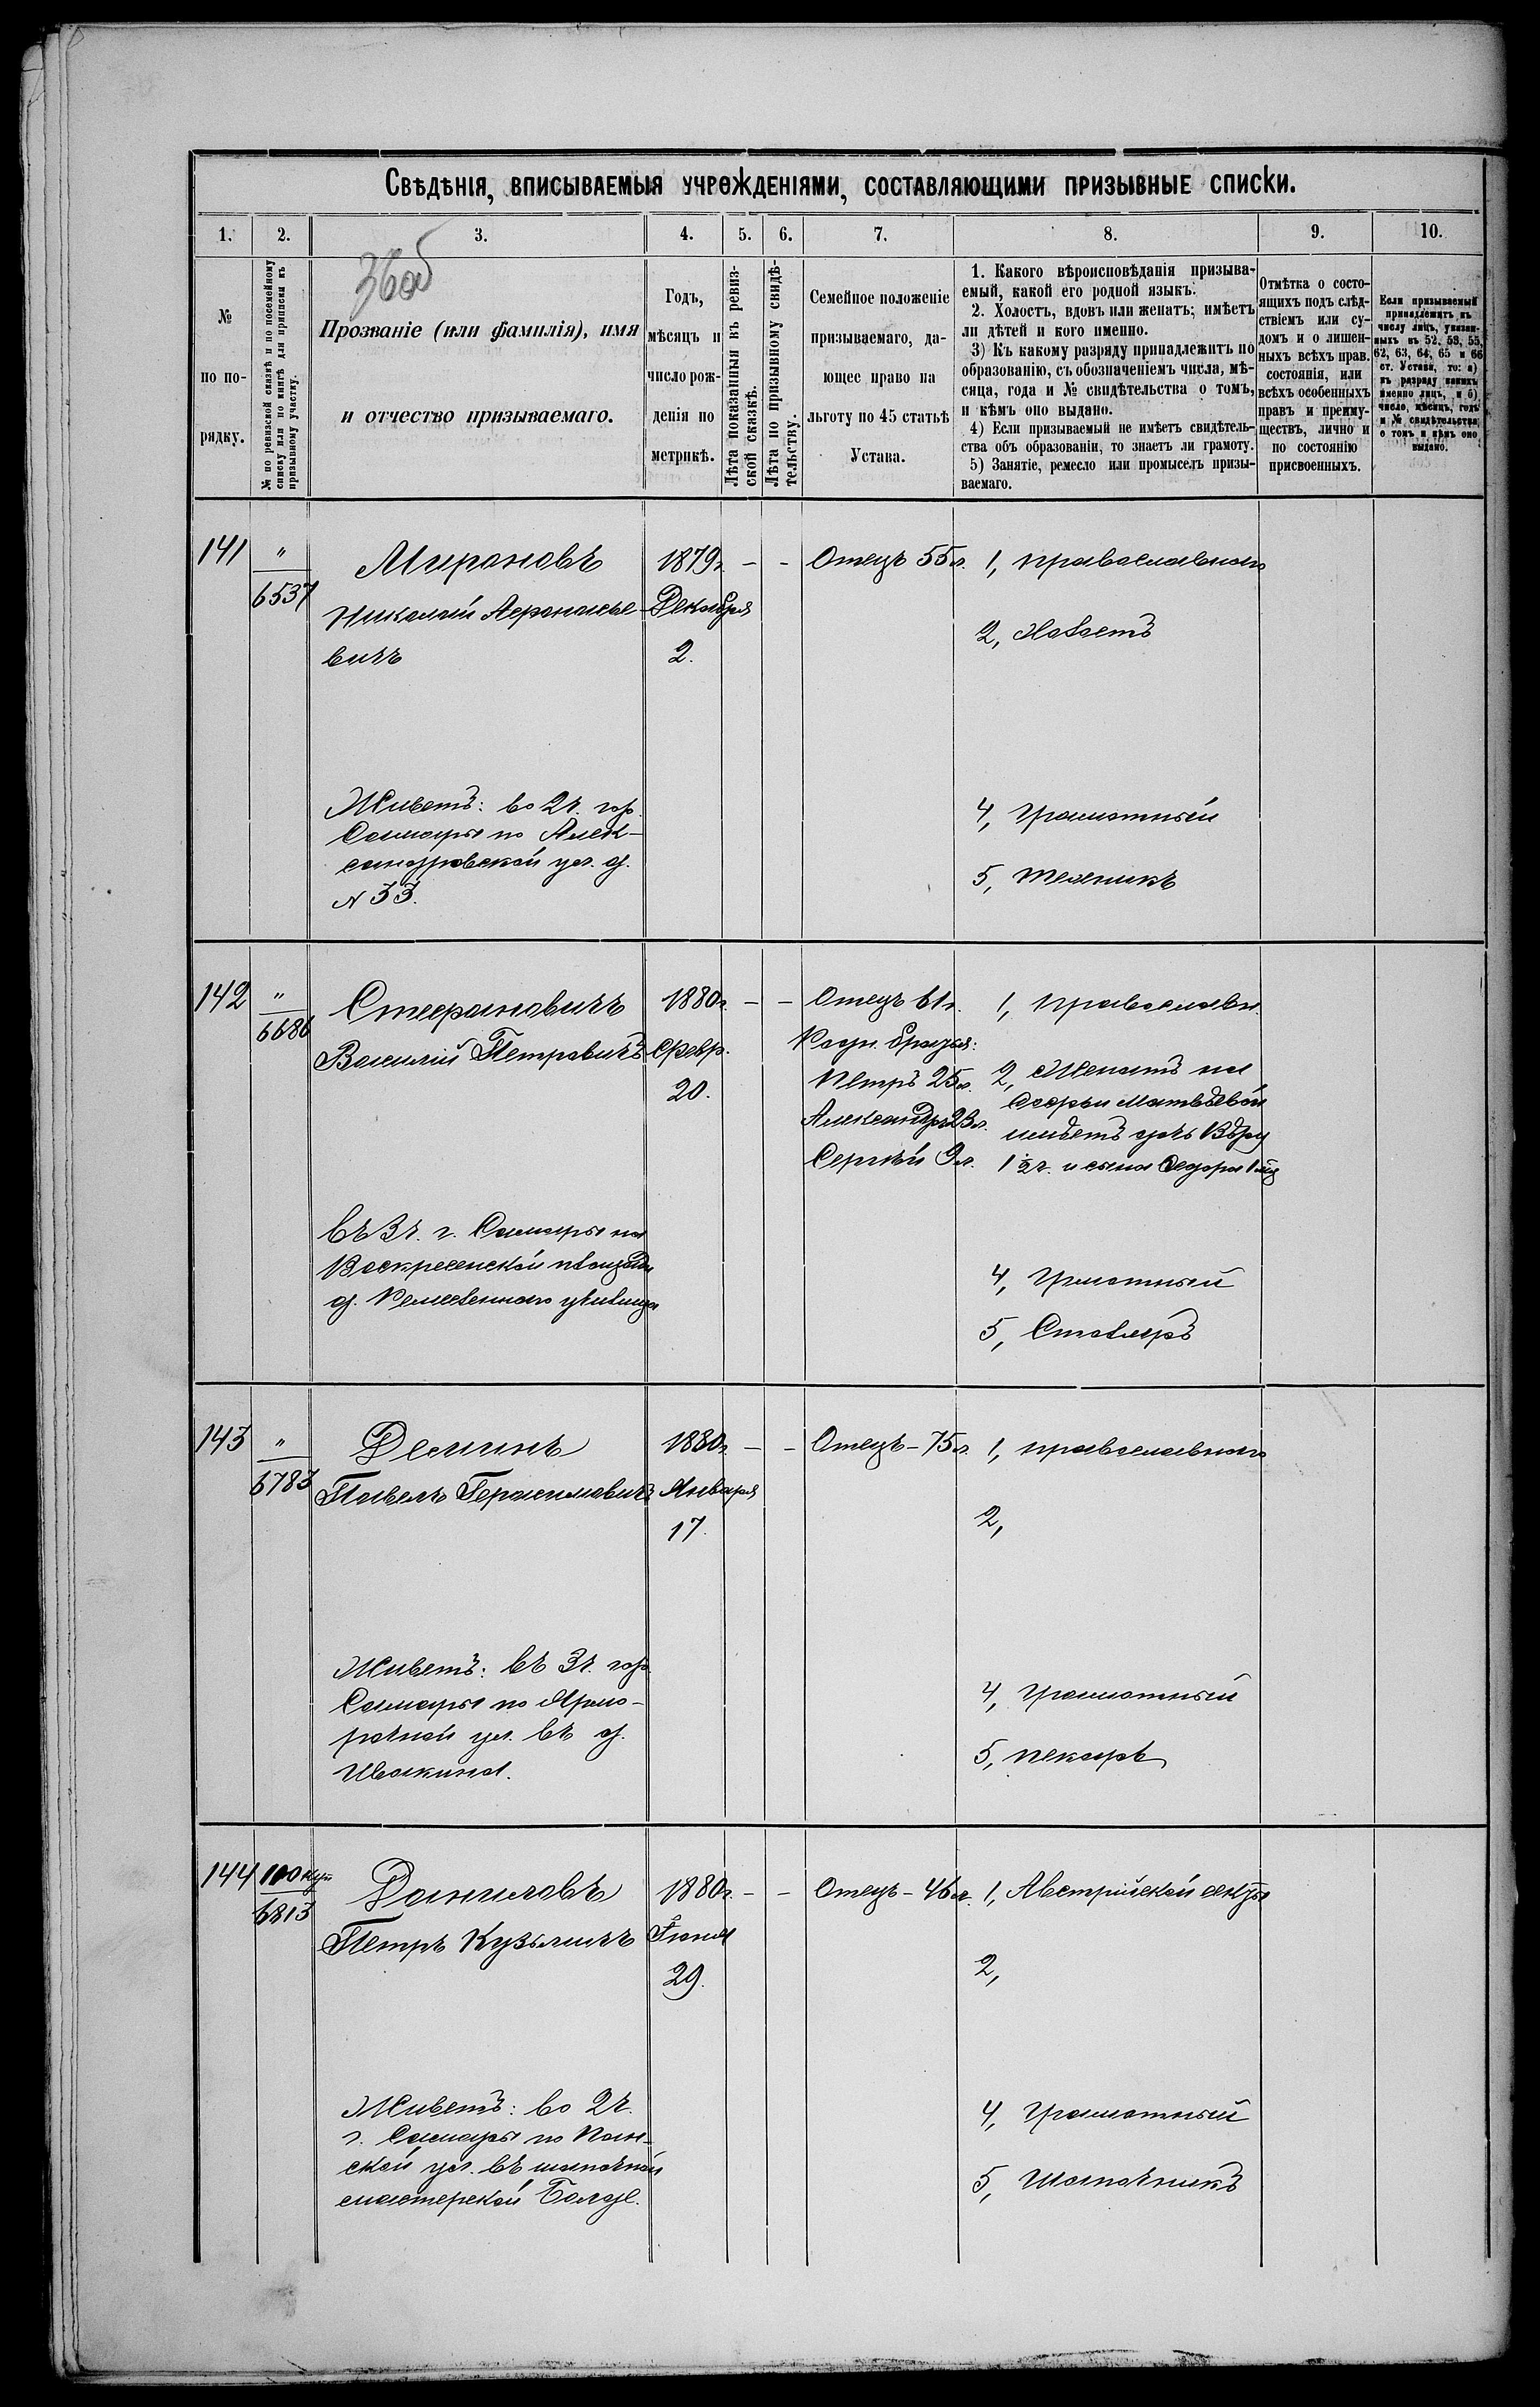 Свѣдѣнія, вписываемыя учрежденіями, составляющими призывные списки.
1. 2. 3. 4. 5. 6. 7. 8. 9. 10.
36об
№
по по-
рядку.
№ по ревизской сказкѣ и по посемейному
списку или по книгѣ для приписки къ
призывному участку.
Прозваніе (или фамилія), имя
и отчество призываемаго.
Годъ,
мѣсяцъ и
число рож-
денія по
метрикѣ.
Лѣта показанныя въ ревиз-
ской сказкѣ.
Лѣта по призывному свидѣ-
тельству.
Семейное положеніе
призываемаго, да-
ющее право на
льготу по 45 статьѣ
Устава.
1. Какого вѣроисповѣданія призыва-
емый, какой его родной языкъ.
2. Холостъ, вдовъ или женатъ; имѣетъ
ли дѣтей и кого именно.
3) Къ какому разряду принадлежитъ по
образованію, съ обозначеніемъ числа, мѣ-
сяца, года и № свидѣтельства о томъ,
и кѣмъ оно выдано.
4) Если призываемый не имѣетъ свидѣтель-
ства объ образованіи, то знаетъ ли грамоту.
5) Занятіе, ремесло или промыселъ призы-
ваемаго.
Отмѣтка о состо-
ящихъ подъ слѣд-
ствіемъ или су-
домъ и о лишен-
ныхъ всѣхъ правъ
состоянія, или
всѣхъ особенныхъ
правъ и преиму-
ществъ, лично и
по состоянію
присвоенныхъ.
Если призываемый
принадлежитъ къ
числу лицъ, указан-
ныхъ въ 52, 53, 55,
62, 63, 64, 65 и 66
ст. Устава, то: а)
къ разряду какихъ
именно лицъ, и б)
число, мѣсяцъ, годъ
и № свидѣтельства
о томъ и кѣмъ оно
выдано.
141
"
6537
Мироновъ
Николай Афонасье-
вичъ
1879г.
Декабря
2.
- -
Отецъ 55л.
1, православнаго
2, Холостъ
Живетъ: во 2ч. гор.
Самары по Алек-
сандровской ул. д.
№ 33.
4, Грамотный
5,
142
"
6686
Стефановичъ
Василій Петровичъ
1880г.
Февр.
20.
- -
Отецъ 61г.
Родн. братья:
Петръ 25л.
Александръ 23л.
Сергѣй 9л.
1, Православн.
2, Женатъ на
Софьи Матвѣевой
имѣетъ дочь Вѣру
1½г. и сына Федора 1 мѣс
въ 3ч. г. Самары на
Воскресенской площади
д. Ремесленнаго училища
4, Грмотный
5, Столяръ
143
"
6783
Деминъ
Павелъ Герасимовичъ
1880г.
Января
17.
- -
Отецъ - 75л.
1, православнаго
2,
Живетъ: въ 3ч. гор.
Самары по Ярмо-
рочной ул. въ д.
Ивакина.
4, Грамотный
5, пекарь
144
6813
Даниловъ
Петръ Кузьмичъ
1880г.
Іюня
29.
- -
Отецъ - 46л.
1, Австрійской секты
2,
Живетъ: во 2ч.
г. Самары по Пан-
ской ул. въ шапочной
мастерской
4, Грамотный
5, Шапочникъ